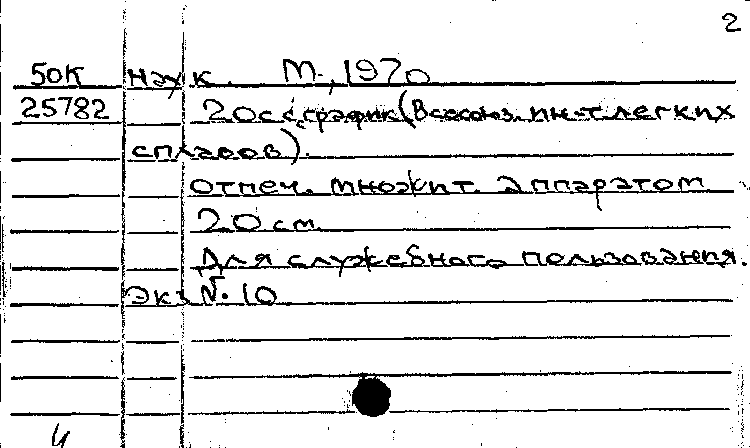 2
50К наук. М., 1970
25782 20с с график (Всесоюз. ин-т легких
сплавов).
отпеч. множит. аппаратом
20 см.
Для служебного пользования.
Экз № 10
4